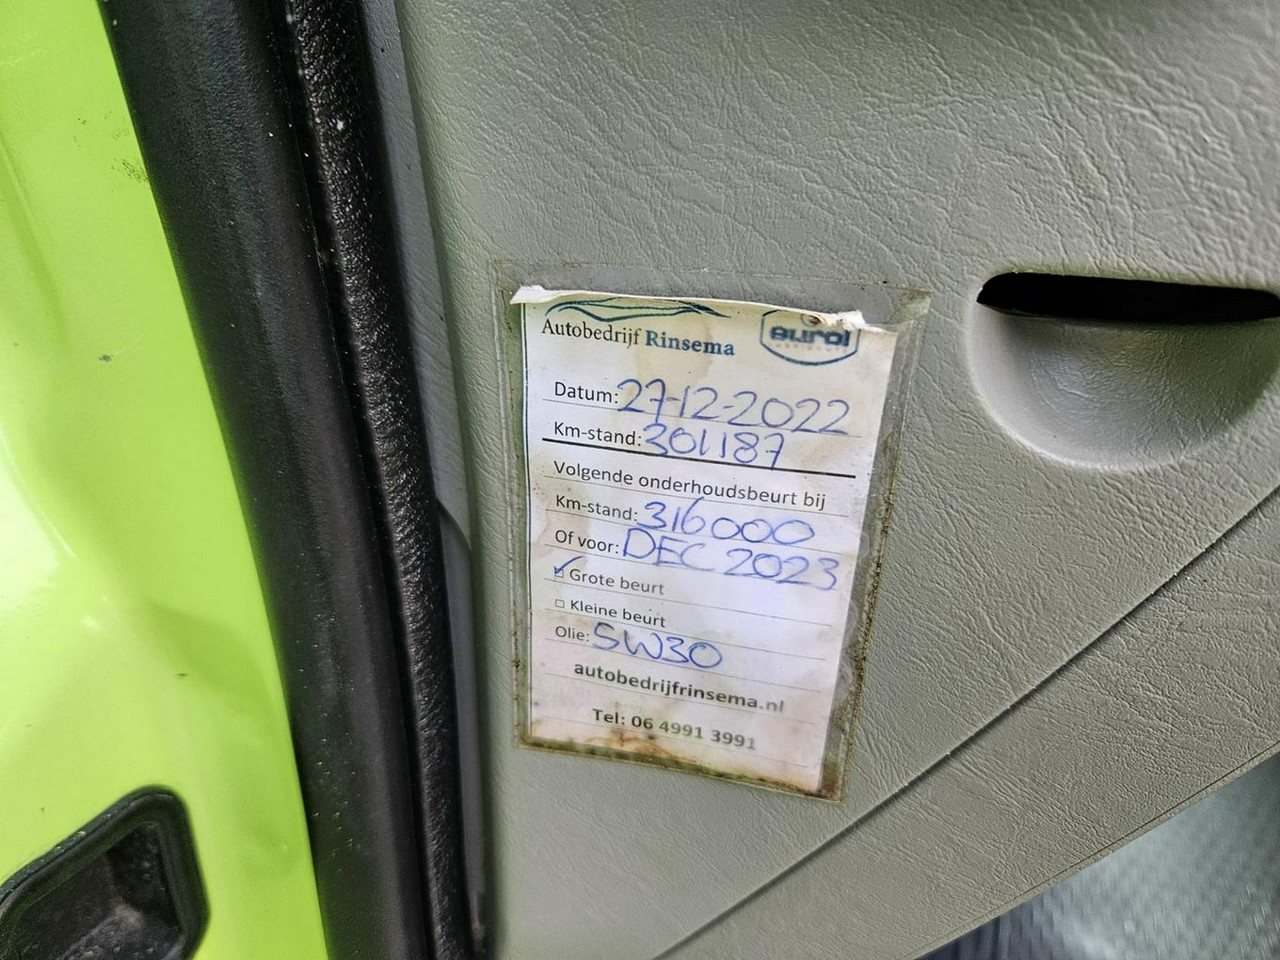 Autobedrijf Rinsema
eurol
Datum: 27-12-2022
Km-stand: 301187
Volgende onderhoudsbeurt bij
Km-stand: 316000
Of voor: DEC 2023
☑ Grote beurt
☐ Kleine beurt
Olie: 5W30
autobedrijfrinsema.nl
Tel: 06 4991 3991